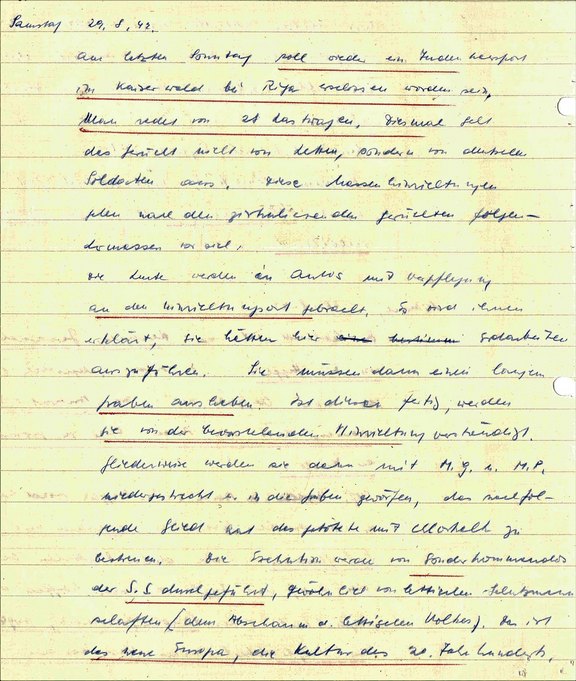 Samstag 29. 8. 42.
Am letzten Sonntag soll wieder ein Judentransport
im Kaiserwald bei Riga erschossen worden sein,
Man redet von 28 Lastwagen. Diesmal geht
das Gerücht nicht von Letten, sondern von deutschen
Soldaten aus. Diese Massenhinrichtungen
gehen nach den zirkulierenden Gerüchten folgen-
dermassen vor sich.
Die Leute werden in Autos mit Verpflegung
an den Hinrichtungsort gebracht. Es wird ihnen
erklärt, sie hätten hier eine bestimm Erdarbeiten
auszuführen. Sie müssen dann einen langen
Graben ausheben. Ist dieser fertig, werden
sie von der bevorstehenden Hinrichtung verständigt.
Gliederweise werden sie dann mit M.G. u. M.P.
niedergestreckt u. in die Gräben geworfen, das nachfol-
gende Glied hat das getötete mit Chlorkalk zu
bestreuen. Die Exekution werde von Sonderkommandos
der S.S durchgeführt, gewöhnlich von lettischen Schutzmann
schaften (dem Abschaum d. lettischen Volkes). Das ist
das neue Europa, die Kultur des 20. Jahrhunderts.